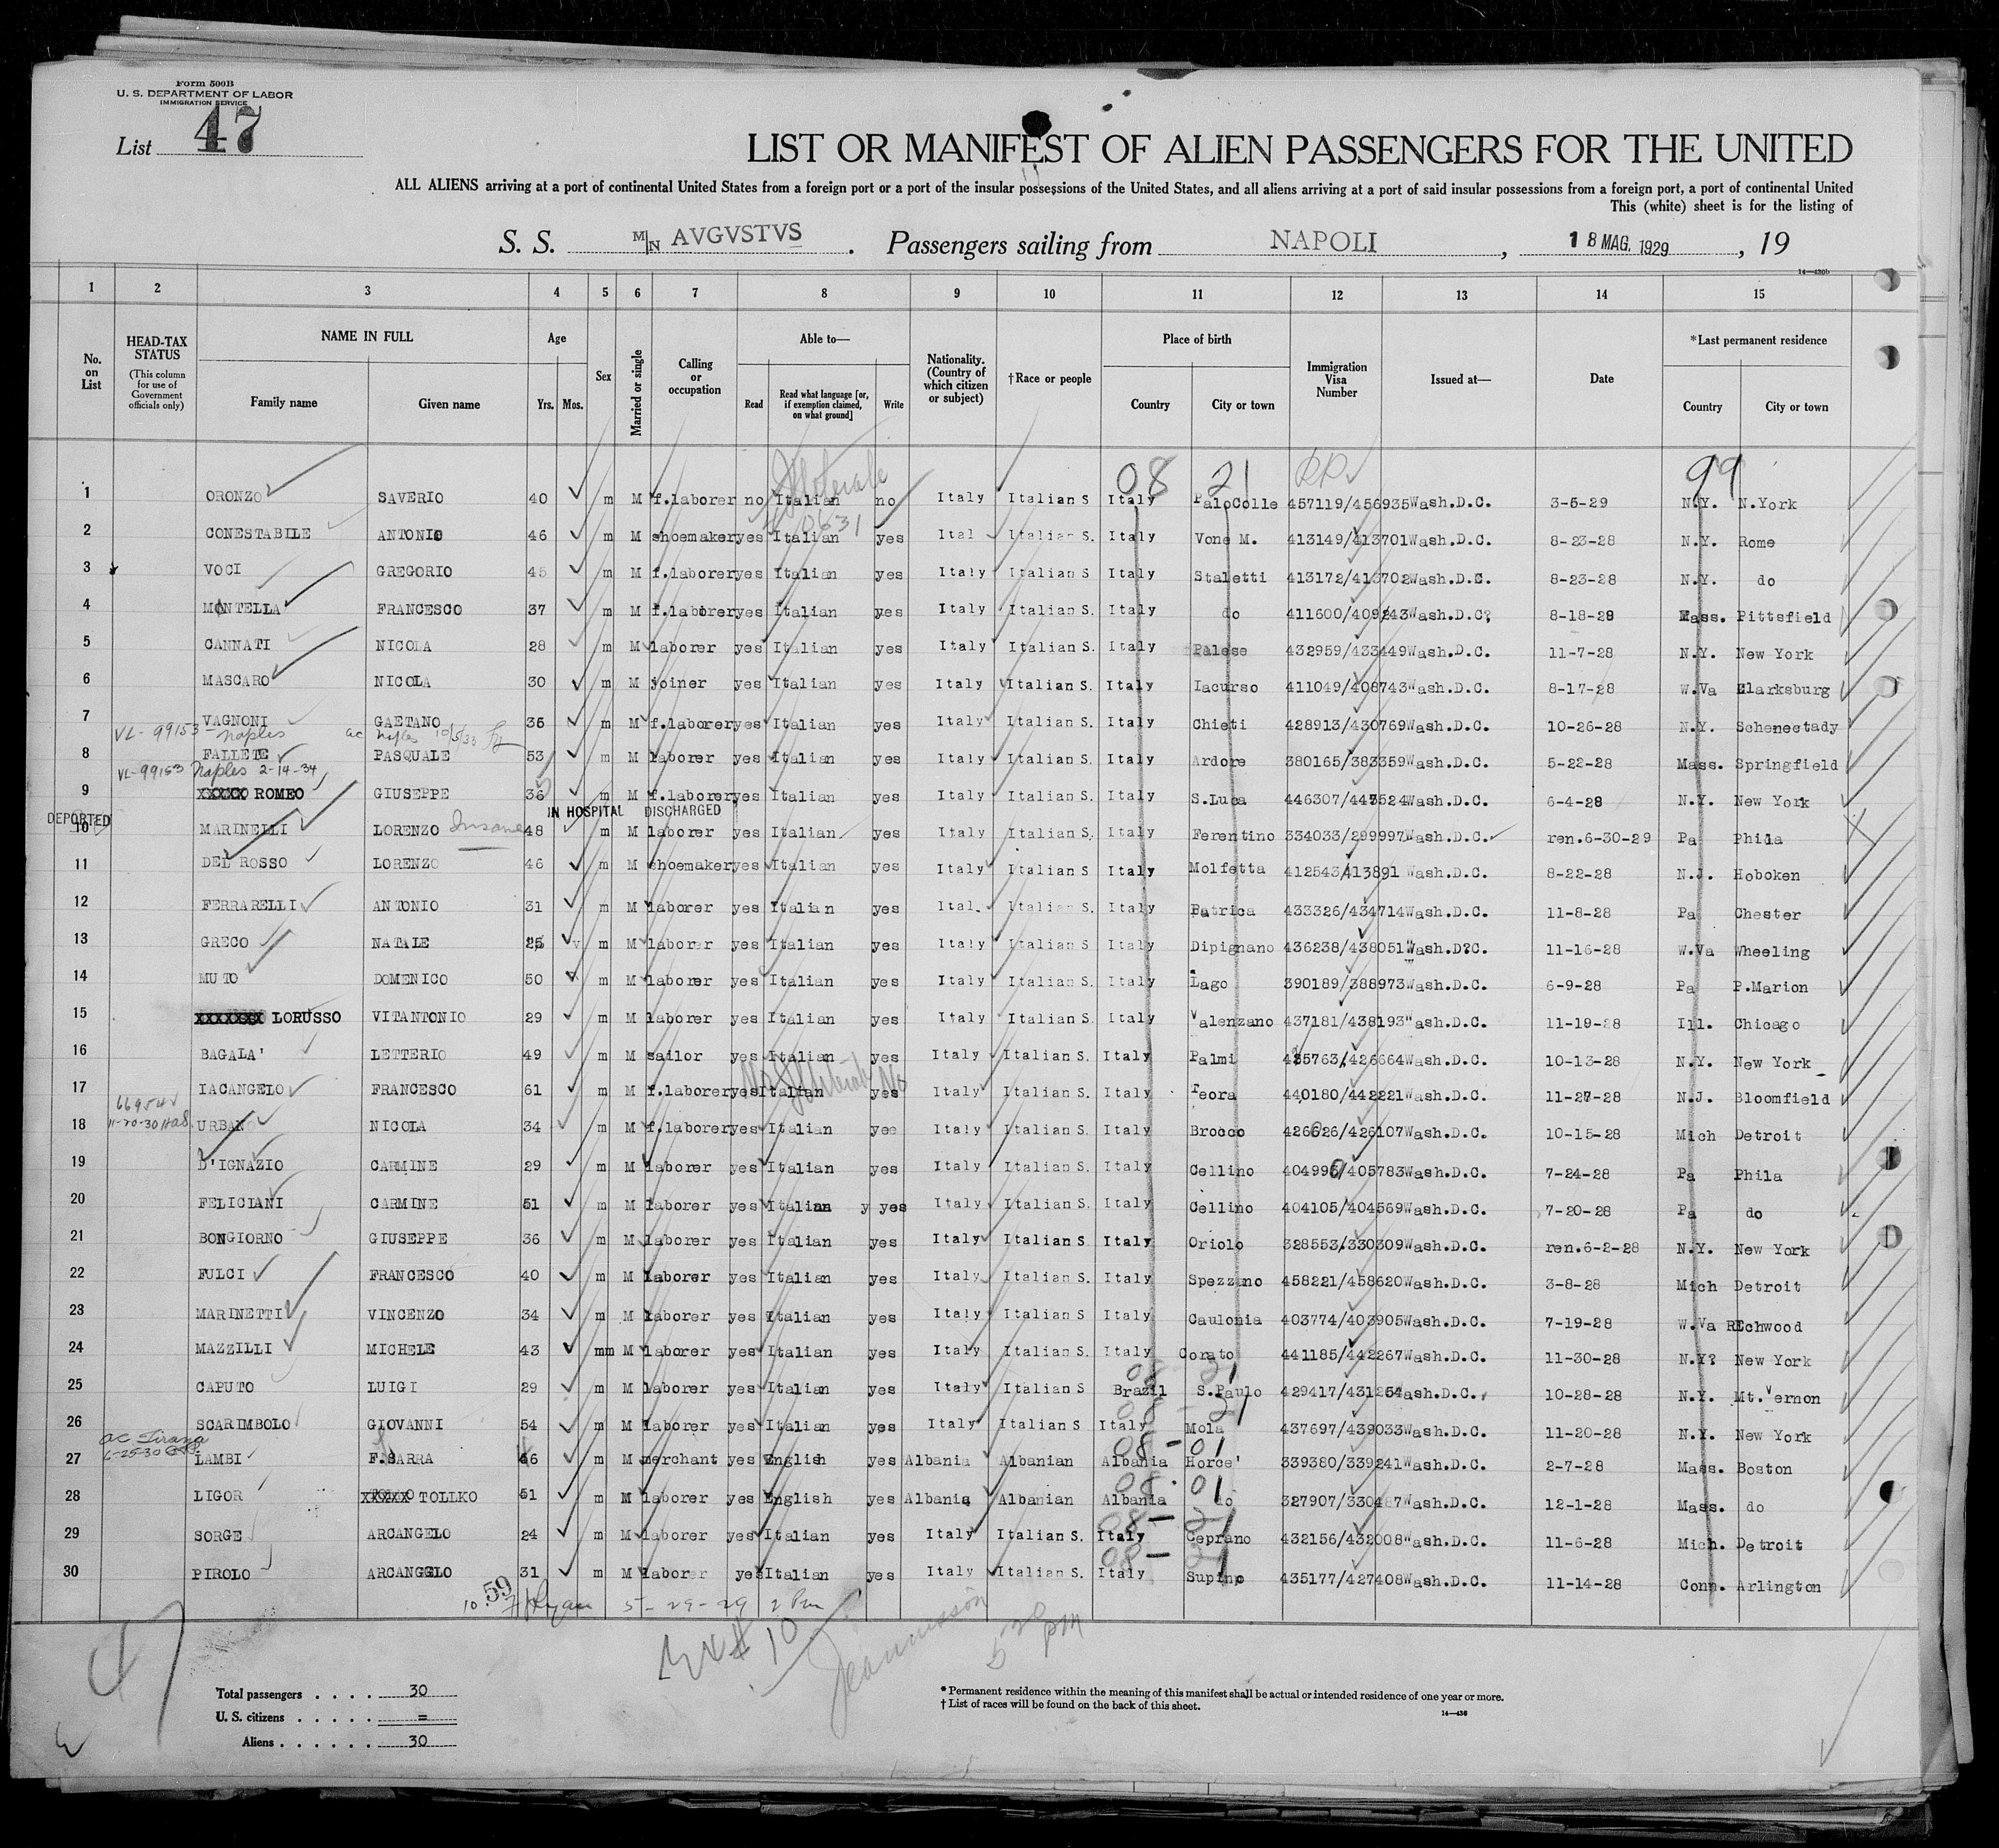 Form 500B
U. S. DEPARTMENT OF LABOR
IMMIGRATION SERVICE
List 47
LIST OR MANIFEST OF ALIEN PASSENGERS FOR THE UNITED
ALL ALIENS arriving at a port of continental United States from a foreign port or a port of the insular possessions of the United States, and all aliens arriving at a port of said insular possessions from a foreign port, a port of continental United
This (white) sheet is for the listing of
S. S. M/N AVGVSTVS . Passengers sailing from NAPOLI , 18 MAG. 1929 , 19
14—430b
1 2 3 4 5 6 7 8 9 10 11 12 13 14 15
No. on List HEAD-TAX STATUS (This column for use of Government officials only) NAME IN FULL Family name Given name Age Yrs. Mos. Sex Married or single Calling or occupation Able to— Read Read what language [or, if exemption claimed, on what ground] Write Nationality. (Country of which citizen or subject) †Race or people Place of birth Country City or town Immigration Visa Number Issued at— Date *Last permanent residence Country City or town
08 21 99
1 ORONZO SAVERIO 40 m M f.laborer no Italian no Italy Italian S Italy PaloColle 457119/456935 Wash.D.C. 3-5-29 N.Y. N.York
2 CONESTABILE ANTONIO 46 m M shoemaker yes Italian yes Ital Italian S. Italy Vone M. 413149/413701 Wash.D.C. 8-23-28 N.Y. Rome
3 VOCI GREGORIO 45 m M f.laborer yes Italian yes Italy Italian S Italy Staletti 413172/413702 Wash.D.C. 8-23-28 N.Y. do
4 MONTELLA FRANCESCO 37 m M f.laborer yes Italian yes Italy Italian S. Italy do 411600/409243 Wash.D.C? 8-18-28 Mass. Pittsfield
5 CANNATI NICOLA 28 m M laborer yes Italian yes Italy Italian S. Italy Palese 432959/433449 Wash.D.C. 11-7-28 N.Y. New York
6 MASCARO NICOLA 30 m M joiner yes Italian yes Italy Italian S. Italy Iacurso 411049/408743 Wash.D.C. 8-17-28 W.Va Clarksburg
7 VAGNONI GAETANO 36 m M f.laborer yes Italian yes Italy Italian S. Italy Chieti 428913/430769 Wash.D.C. 10-26-28 N.Y. Schenectady
VL-99153 Naples ac Naples 10/5/33
8 FALLETE PASQUALE 53 m M laborer yes Italian yes Italy Italian S. Italy Ardore 380165/383359 Wash.D.C. 5-22-28 Mass. Springfield
VL-99153 Naples 2-14-34
9 XXXXX ROMEO GIUSEPPE 36 m M f.laborer yes Italian yes Italy Italian S. Italy S.Luca 446307/447524 Wash.D.C. 6-4-28 N.Y. New York
DEPORTED IN HOSPITAL DISCHARGED
10 MARINELLI LORENZO Insane 48 m M laborer yes Italian yes Italy Italian S. Italy Ferentino 334033/299997 Wash.D.C. ren.6-30-29 Pa Phila
11 DEL ROSSO LORENZO 46 m M shoemaker yes Italian yes Italy Italian S Italy Molfetta 412543/413891 Wash.D.C. 8-22-28 N.J. Hoboken
12 FERRARELLI ANTONIO 31 m M laborer yes Italian yes Ital. Italian S. Italy Patrica 433326/434714 Wash.D.C. 11-8-28 Pa Chester
13 GRECO NATALE 25 m M laborer yes Italian yes Italy Italian S Italy Dipignano 436238/438051 Wash.D?C. 11-16-28 W.Va Wheeling
14 MUTO DOMENICO 50 m M laborer yes Italian yes Italy Italian S. Italy Lago 390189/388973 Wash.D.C. 6-9-28 Pa P.Marion
15 XXXXXXX LORUSSO VITANTONIO 29 m M laborer yes Italian yes Italy Italian S. Italy Valenzano 437181/438193 Wash.D.C. 11-19-28 Ill. Chicago
16 BAGALA' LETTERIO 49 m M sailor yes Italian yes Italy Italian S. Italy Palmi 425763/426664 Wash.D.C. 10-13-28 N.Y. New York
17 IACANGELO FRANCESCO 61 m M f.laborer yes Italian yes No Italy Italian S. Italy Feora 440180/442221 Wash.D.C. 11-27-28 N.J. Bloomfield
66954
11-20-30
18 URBANO NICOLA 34 m M f.laborer yes Italian yes Italy Italian S. Italy Brocco 426026/426107 Wash.D.C. 10-15-28 Mich Detroit
19 D'IGNAZIO CARMINE 29 m M laborer yes Italian yes Italy Italian S. Italy Cellino 404995/405783 Wash.D.C. 7-24-28 Pa Phila
20 FELICIANI CARMINE 51 m M laborer yes Italian y yes Italy Italian S. Italy Cellino 404105/404569 Wash.D.C. 7-20-28 Pa do
21 BONGIORNO GIUSEPPE 36 m M laborer yes Italian yes Italy Italian S. Italy Oriolo 328553/330309 Wash.D.C. ren.6-2-28 N.Y. New York
22 FULCI FRANCESCO 40 m M laborer yes Italian yes Italy Italian S. Italy Spezzano 458221/458620 Wash.D.C. 3-8-28 Mich Detroit
23 MARINETTI VINCENZO 34 m M laborer yes Italian yes Italy Italian S Italy Caulonia 403774/403905 Wash.D.C. 7-19-28 W.Va Richwood
24 MAZZILLI MICHELE 43 mm M laborer yes Italian yes Italy Italian S. Italy Corato 441185/442267 Wash.D.C. 11-30-28 N.Y? New York
08 21
25 CAPUTO LUIGI 29 m M laborer yes Italian yes Italy Italian S Brazil S.Paulo 429417/431254 Wash.D.C. 10-28-28 N.Y. Mt.Vernon
08 - 21
26 SCARIMBOLO GIOVANNI 54 m M laborer yes Italian yes Italy Italian S Italy Mola 437697/439033 Wash.D.C. 11-20-28 N.Y. New York
ac Tirana 6-25-30 08-01
27 LAMBI F.SARRA 46 m M merchant yes English yes Albania Albanian Albania Horce' 339380/339241 Wash.D.C. 2-7-28 Mass. Boston
08 - 01
28 LIGOR XXXXX TOLLKO 51 m M laborer yes English yes Albania Albanian Albania do 327907/330487 Wash.D.C. 12-1-28 Mass. do
08 - 21
29 SORGE ARCANGELO 24 m M laborer yes Italian yes Italy Italian S. Italy Ceprano 432156/432008 Wash.D.C. 11-6-28 Mich. Detroit
08 - 21
30 PIROLO ARCANGGLO 31 m M laborer yes Italian yes Italy Italian S. Italy Supino 435177/427408 Wash.D.C. 11-14-28 Conn. Arlington
10 59 5-29-29 2 Pm
5 20 pm
Total passengers . . . . 30
U. S. citizens . . . . . =
Aliens . . . . . . 30
* Permanent residence within the meaning of this manifest shall be actual or intended residence of one year or more.
† List of races will be found on the back of this sheet.
14—436